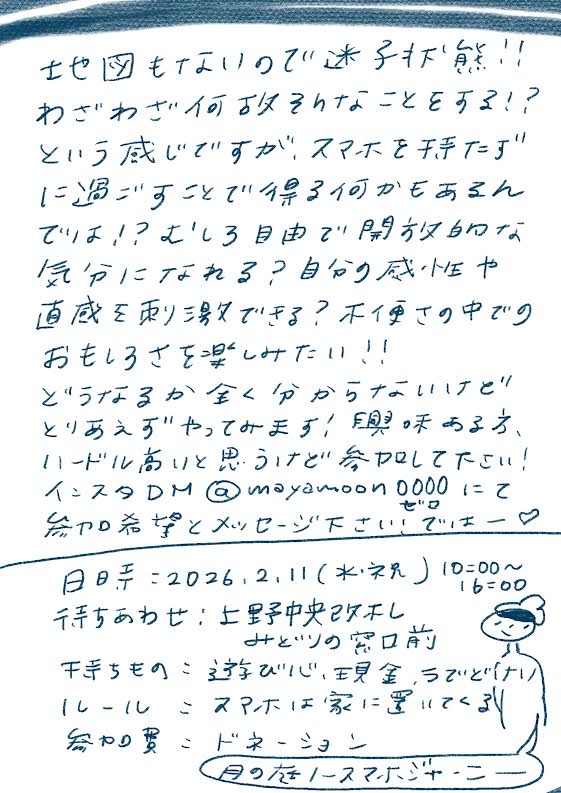 地図もないので迷子状態!!
わざわざ何故そんなことをする!?
という感じですが、スマホを持たず
に過ごすことで得る何かもあるん
では!? むしろ自由で開放的な
気分になれる? 自分の感性や
直感を刺激できる? 不便さの中での
おもしろさを楽しみたい!!
どうなるか全く分からないけど
とりあえずやってみます! 興味ある方、
ハードル高いと思うけど参加して下さい!
インスタDM @mayamoon0000 にて
ゼロ
参加希望とメッセージ下さい! ではー♡
日時:2026.2.11(水・祝) 10:00〜
16:00
待ちあわせ:上野中央改札
みどりの窓口前
持ちもの:遊び心、現金、うでどけい
ルール:スマホは家に置いてくる
参加費:ドネーション
月の庭ノースマホジャーニー